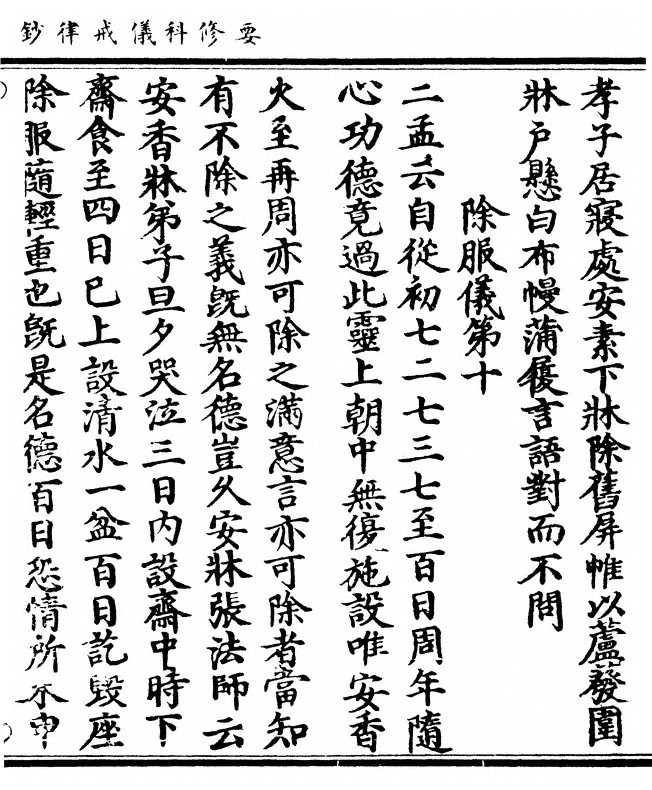 要修科儀戒律鈔
孝子居寢處安素下牀除舊屏帷以蘆蕟圍
牀戶懸白布幔蒲履言語對而不問
除服儀第十
二孟云自從初七二七三七至百日周年隨
心功德竟過此靈上朝中無復施設唯安香
火至再周亦可除之滿意言亦可除者當知
有不除之義旣無名德豈久安牀張法師云
安香牀第子旦夕哭泣三日內設齋中時下
齋食至四日巳上設清水一盆百日訖毀座
除服隨輕重也旣是名德百日恐情所不申